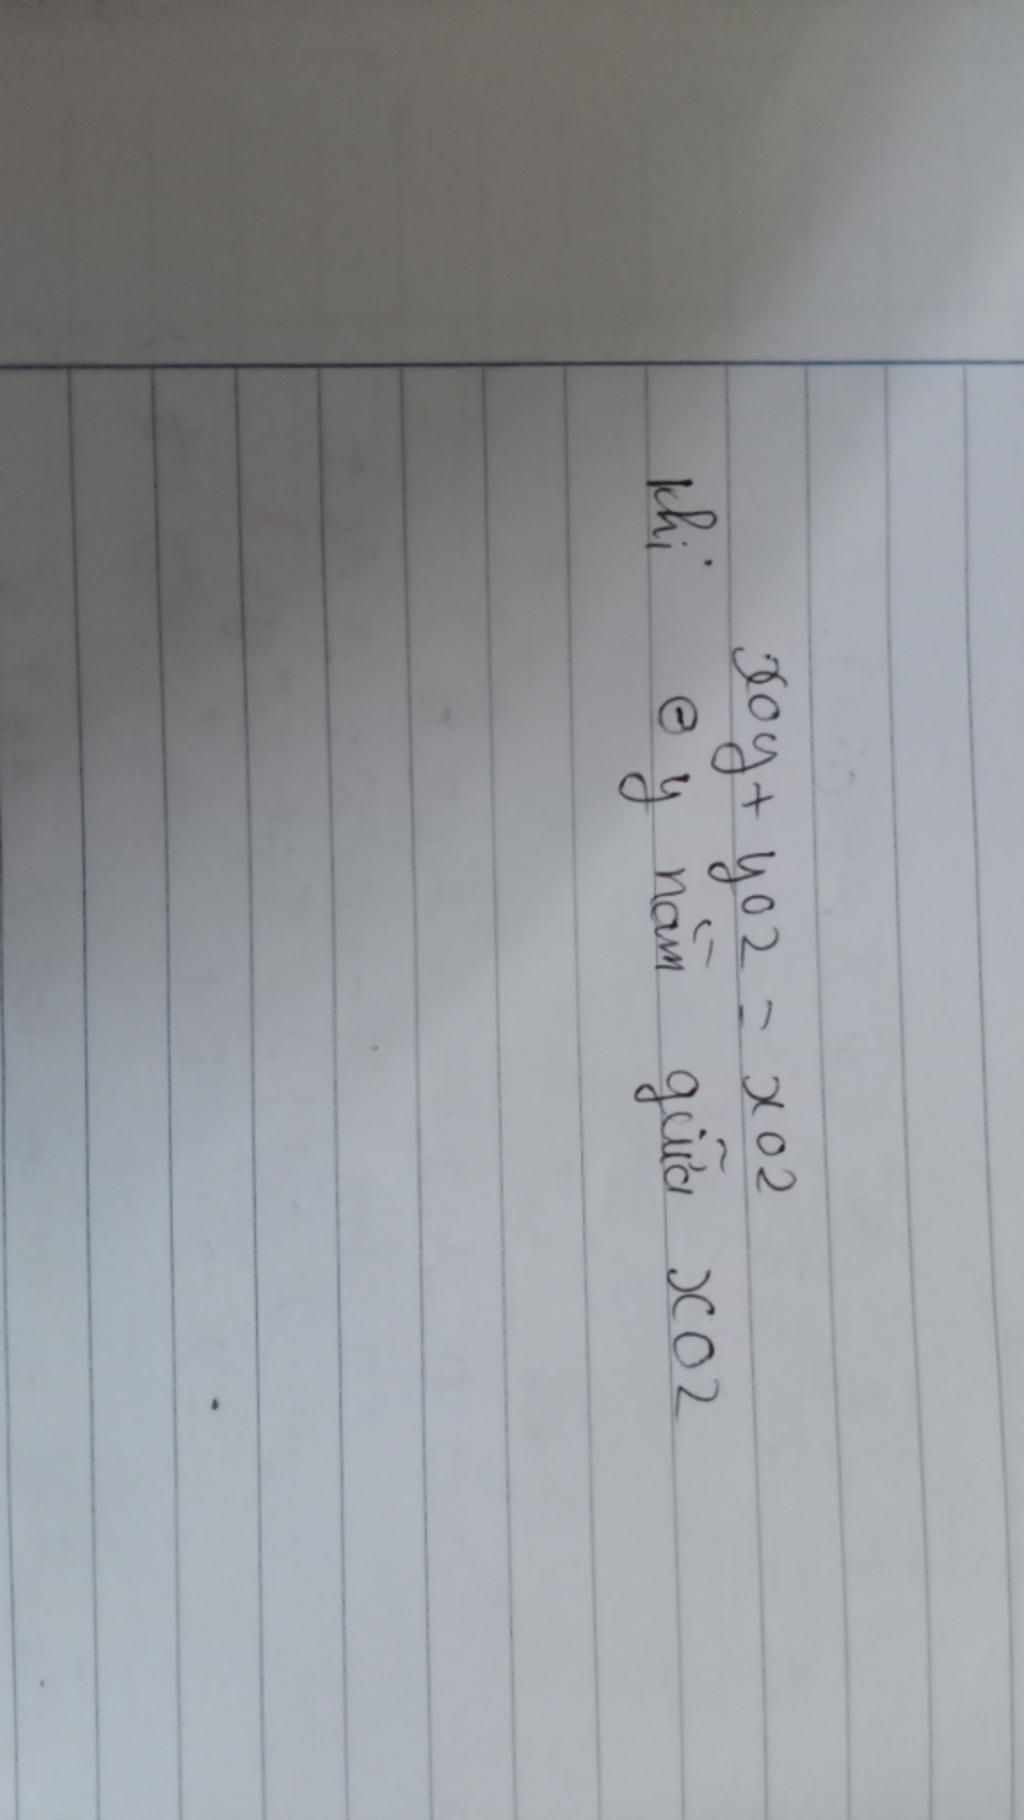 xoy + yo2 = xo2
khi oy nằm giữa xo2